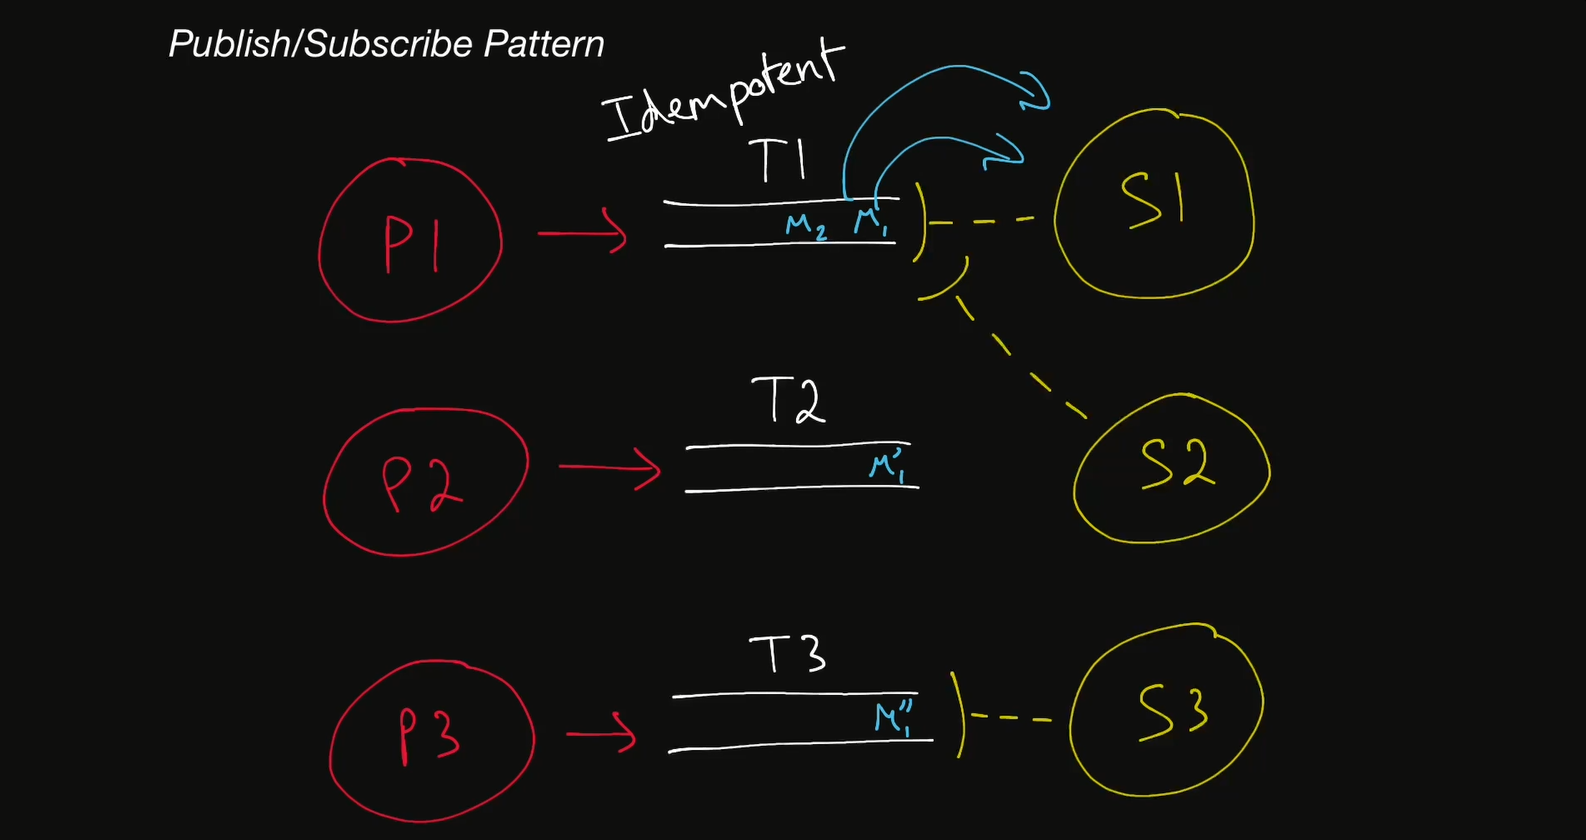 Publish/Subscribe Pattern
Idempotent
T1
P1
M2 M1
S1
T2
P2
M1'
S2
T3
P3
M1''
S3